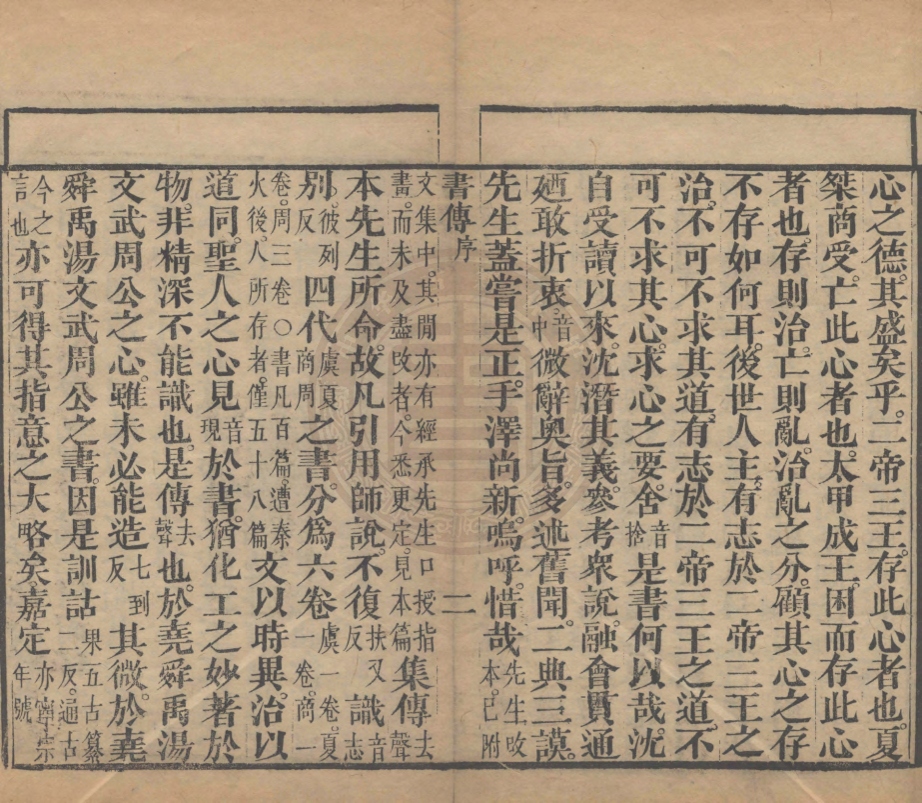 心之德其盛矣乎。二帝三王存此心者也。夏
桀商受亡此心者也。太甲成王困而存此心
者也。存則治。亡則亂。治亂之分。顧其心之存
不存如何耳。後世人主有志於二帝三王之
治。不可不求其道。有志於二帝三王之道。不
可不求其心。求心之要。舍音捨是書何以哉。沈
自受讀以來。沈潛其義。參考衆說。融會貫通
廼敢折衷。音中微辭奧旨。多述舊聞。二典三謨。
先生蓋嘗是正。手澤尚新。嗚呼惜哉先生改本已附
書傳序 二
文集中。其閒亦有經承先生口授指
畫。而未及盡改者。今悉更定。見本篇集傳去聲
本先生所命。故凡引用師說。不復扶又反識音志
別。彼列反四代虞夏商周之書。分爲六卷虞一卷。夏一卷。商一
卷。周三卷〇書凡百篇。遭秦
火後。人所存者。僅五十八篇文以時異。治以
道同。聖人之心見音現於書。猶化工之妙著於
物。非精深不能識也。是傳去聲也。於堯舜禹湯
文武周公之心。雖未必能造七到反其微。於堯
舜禹湯文武周公之書。因是訓詁果五古二反。通古
今之言也亦可得其指意之大略矣。嘉定亦寧宗年號